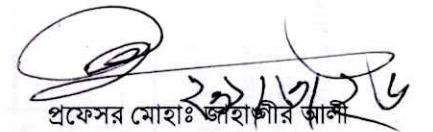 ২৯/৩/২৬
প্রফেসর মোহাঃ জাহাঙ্গীর আলী